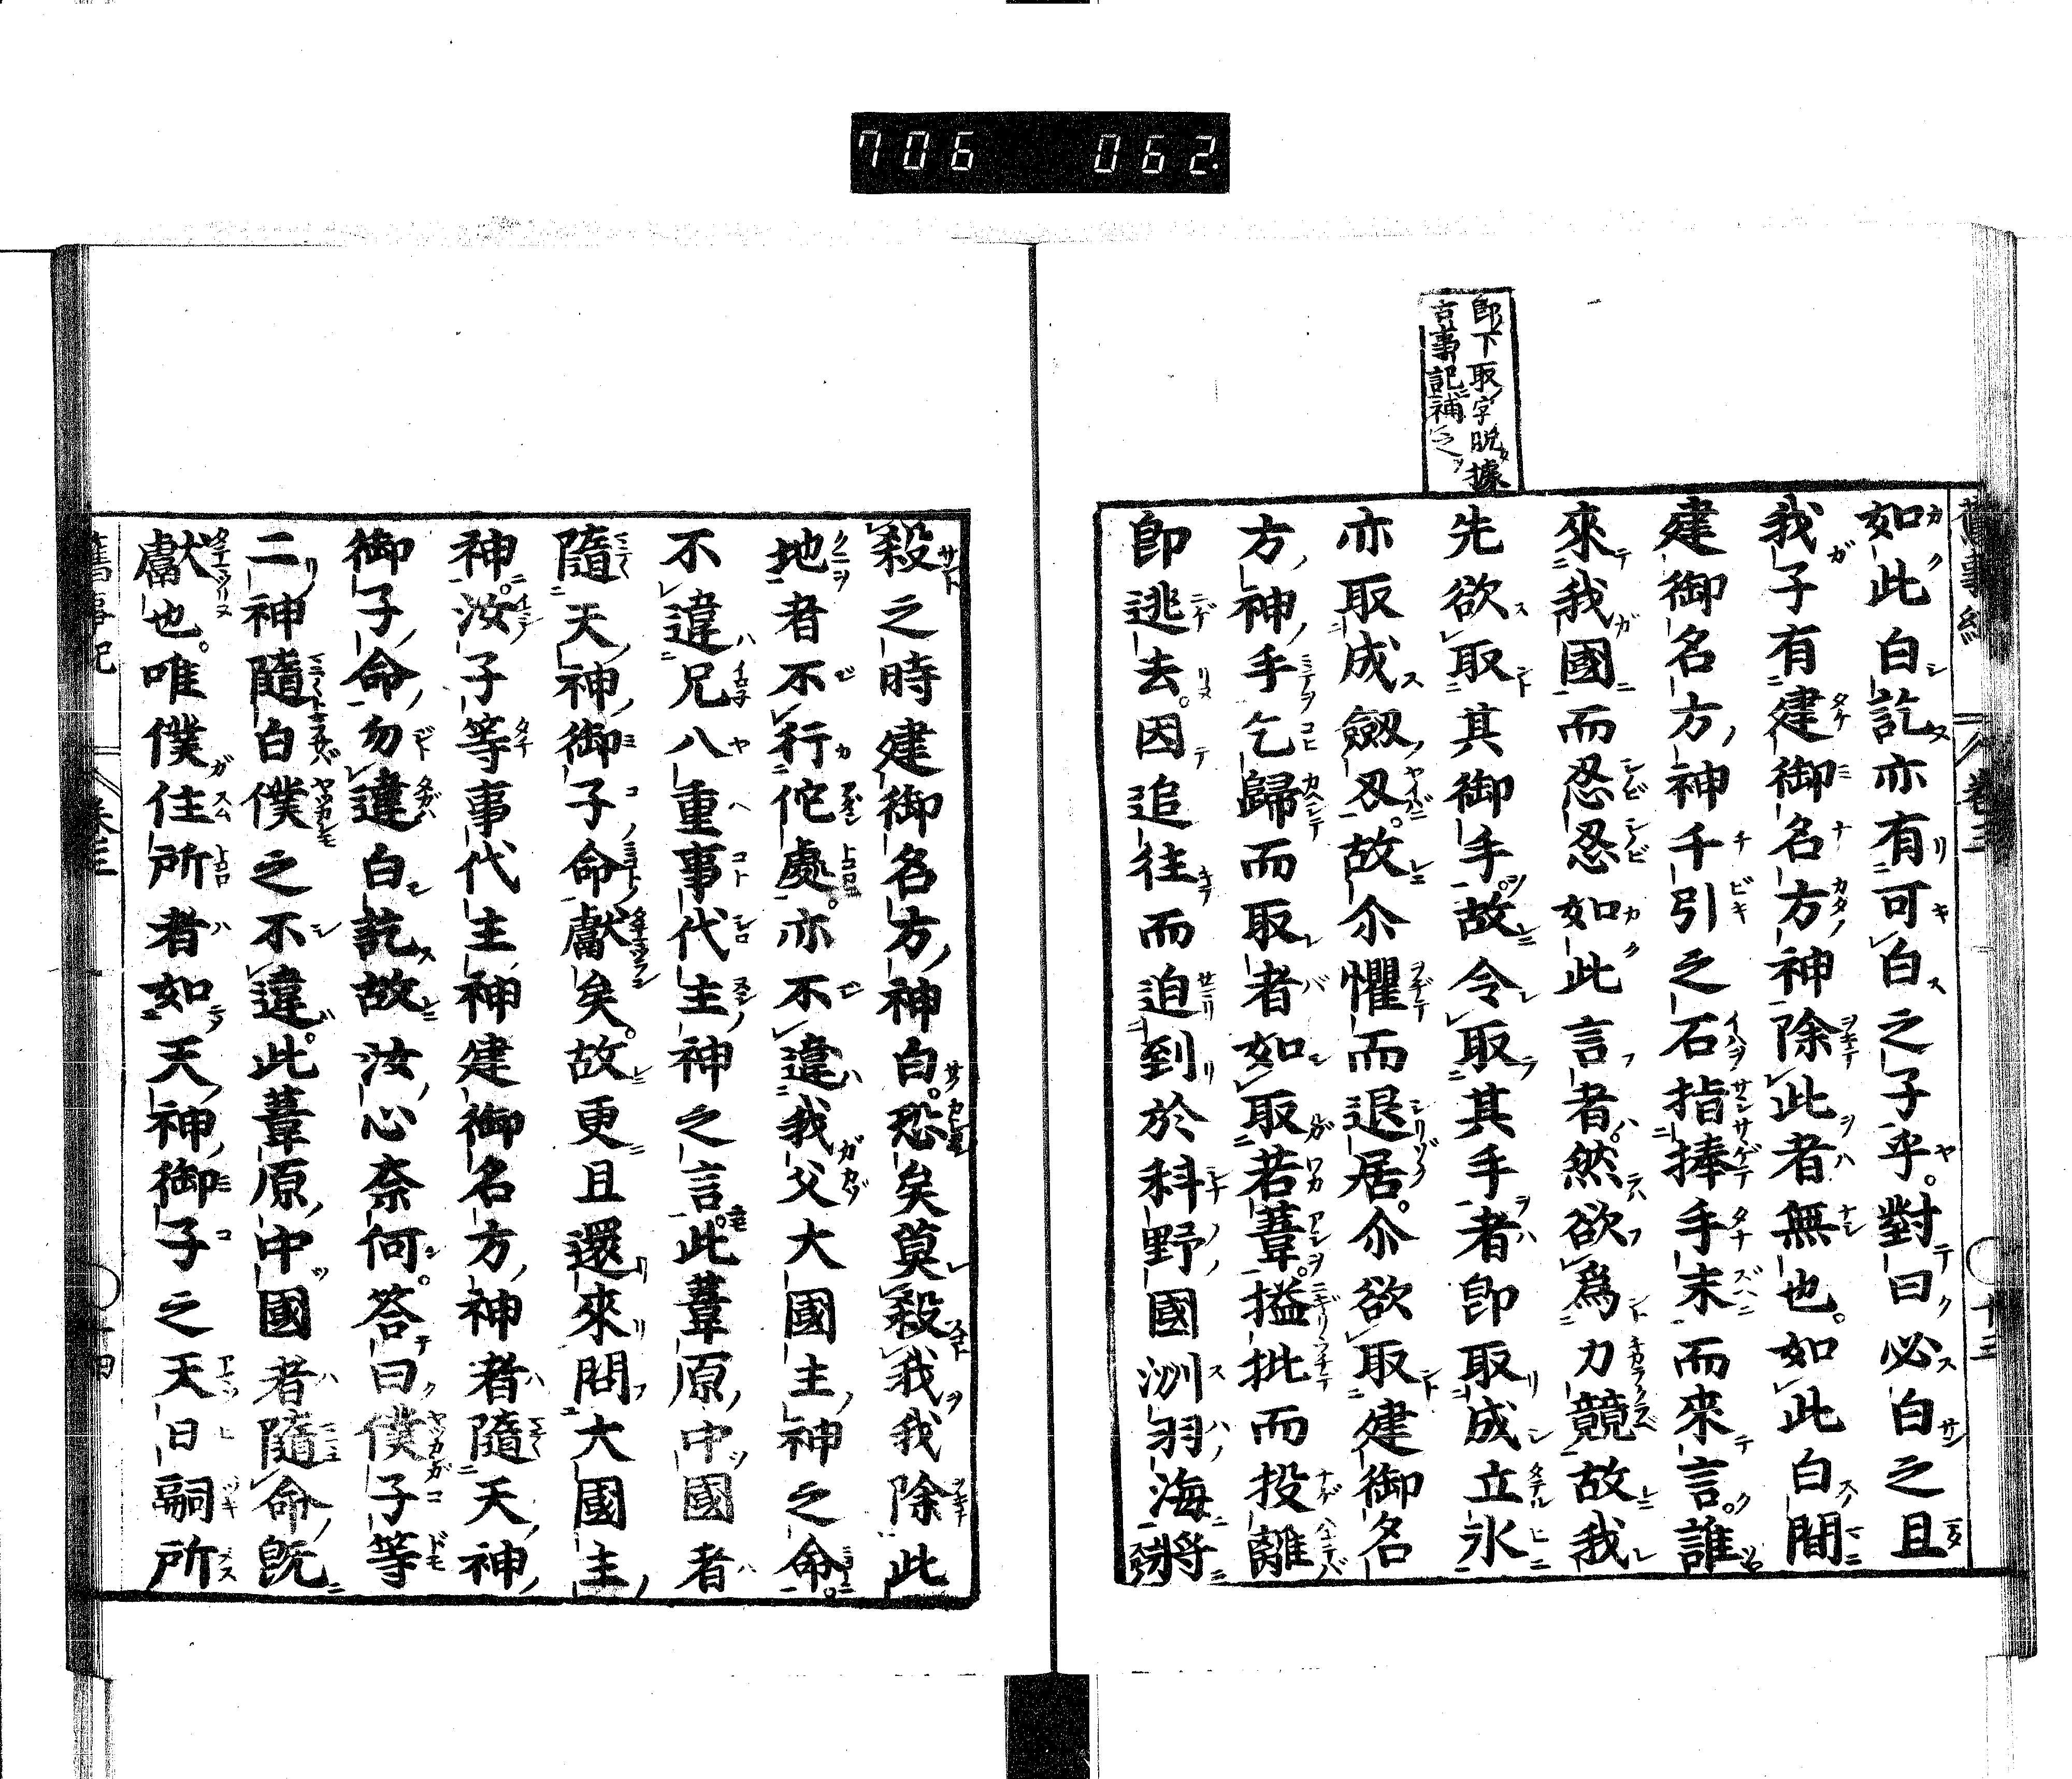 706 062
即下取字脱據
古事記補之
如此白訖亦有可白之子乎對曰必白之且
我子有建御名方神除此者無也如此白間
建御名方神千引之石指捧手末而來言誰
來我國而忍忍如此言者然欲爲力競故我
先欲取其御手故令取其手者即取成立氷
亦取成劔刄故尒懼而退居尒欲取建御名
方神手乞歸而取者如取若葦搤批而投離
即逃去因追往而迫到於科野國洲羽海將
十三
殺之時建御名方神白恐矣莫殺我我除此
地者不行佗處亦不違我父大國主神之命
不違兄八重事代主神之言此葦原中國者
隨天神御子命獻矣故更且還來問大國主
神汝子等事代主神建御名方神者隨天神
御子命勿違白訖故汝心奈何答曰僕子等
二神隨白僕之不違此葦原中國者隨命既
獻也唯僕住所者如天神御子之天日嗣所
舊事紀 卷三